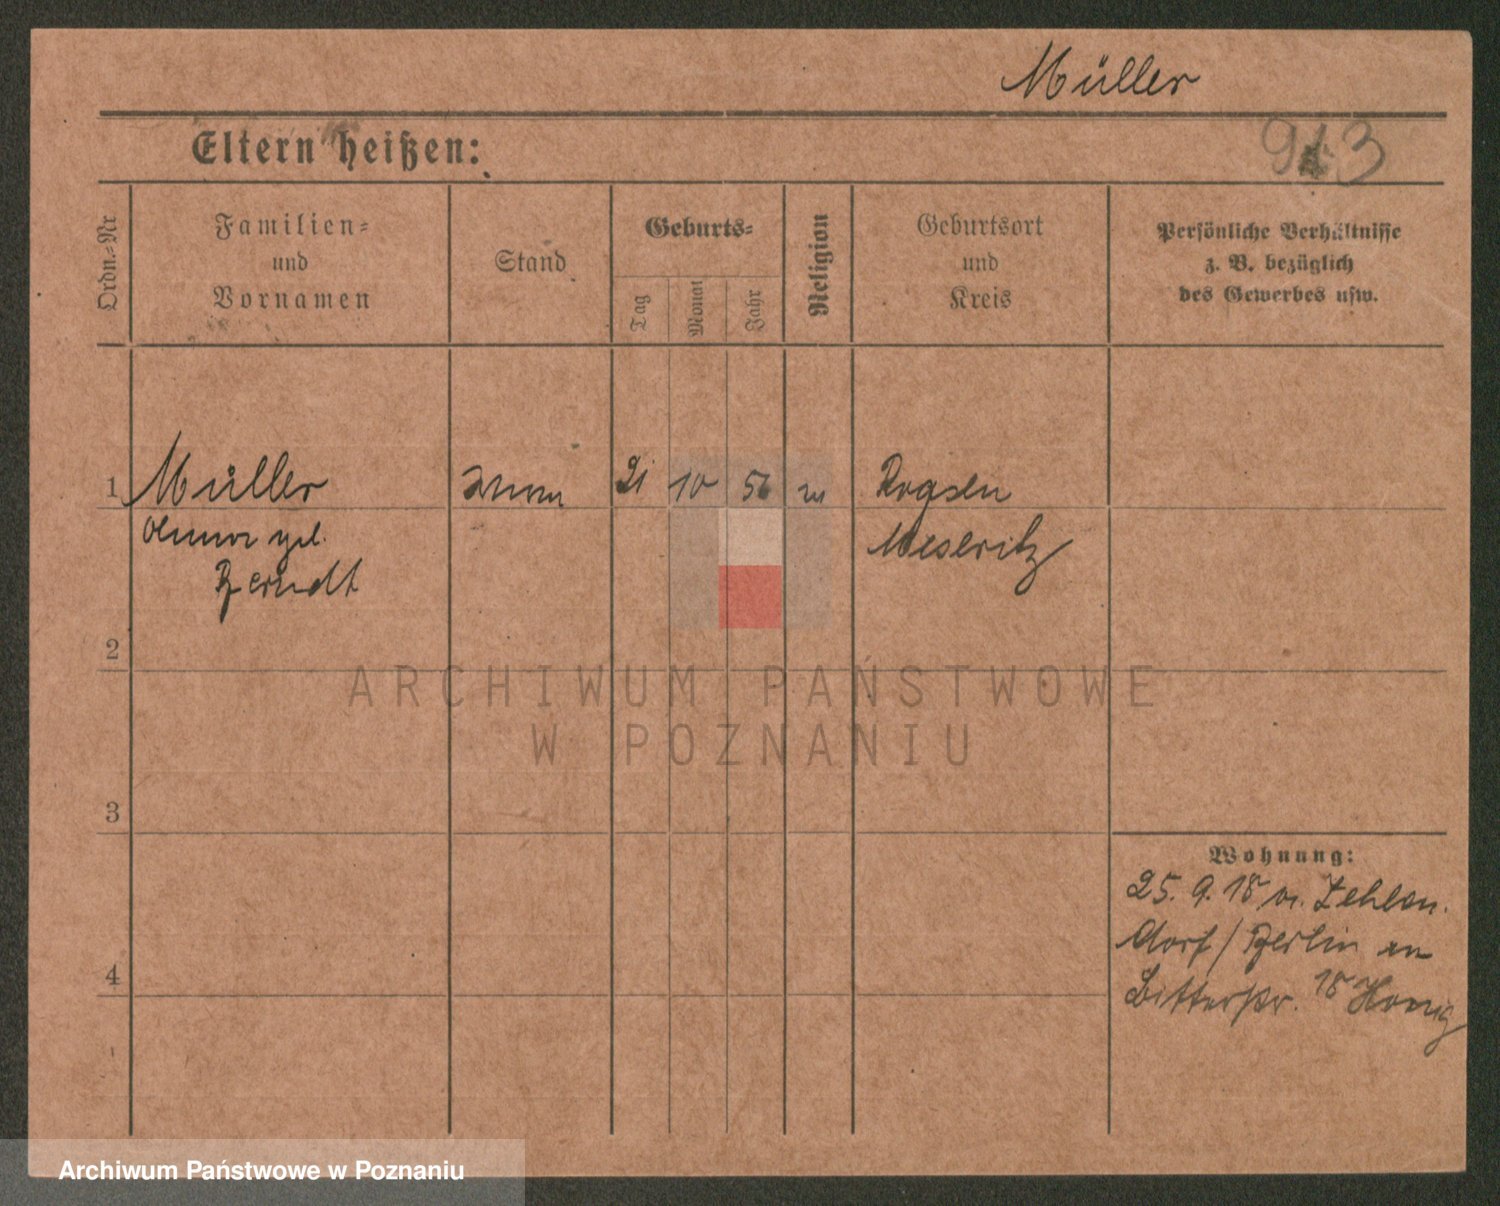 Müller
Eltern heißen:
Ordn.-Nr
Familien-
und
Vornamen
Stand
Geburts-
Tag
Monat
Jahr
Religion
Geburtsort
und
Kreis
Persönliche Verhältnisse
z. B. bezüglich
des Gewerbes usw.
1 Müller 21 10 56 Rogsen
geb. Meseritz
Berndt
2
ARCHIWUM PAŃSTWOWE
W POZNANIU
3
Wohnung:
25. 9. 18 v. Zehlen.
dorf / Berlin
4
Bitterstr. 18 Honig
Archiwum Państwowe w Poznaniu